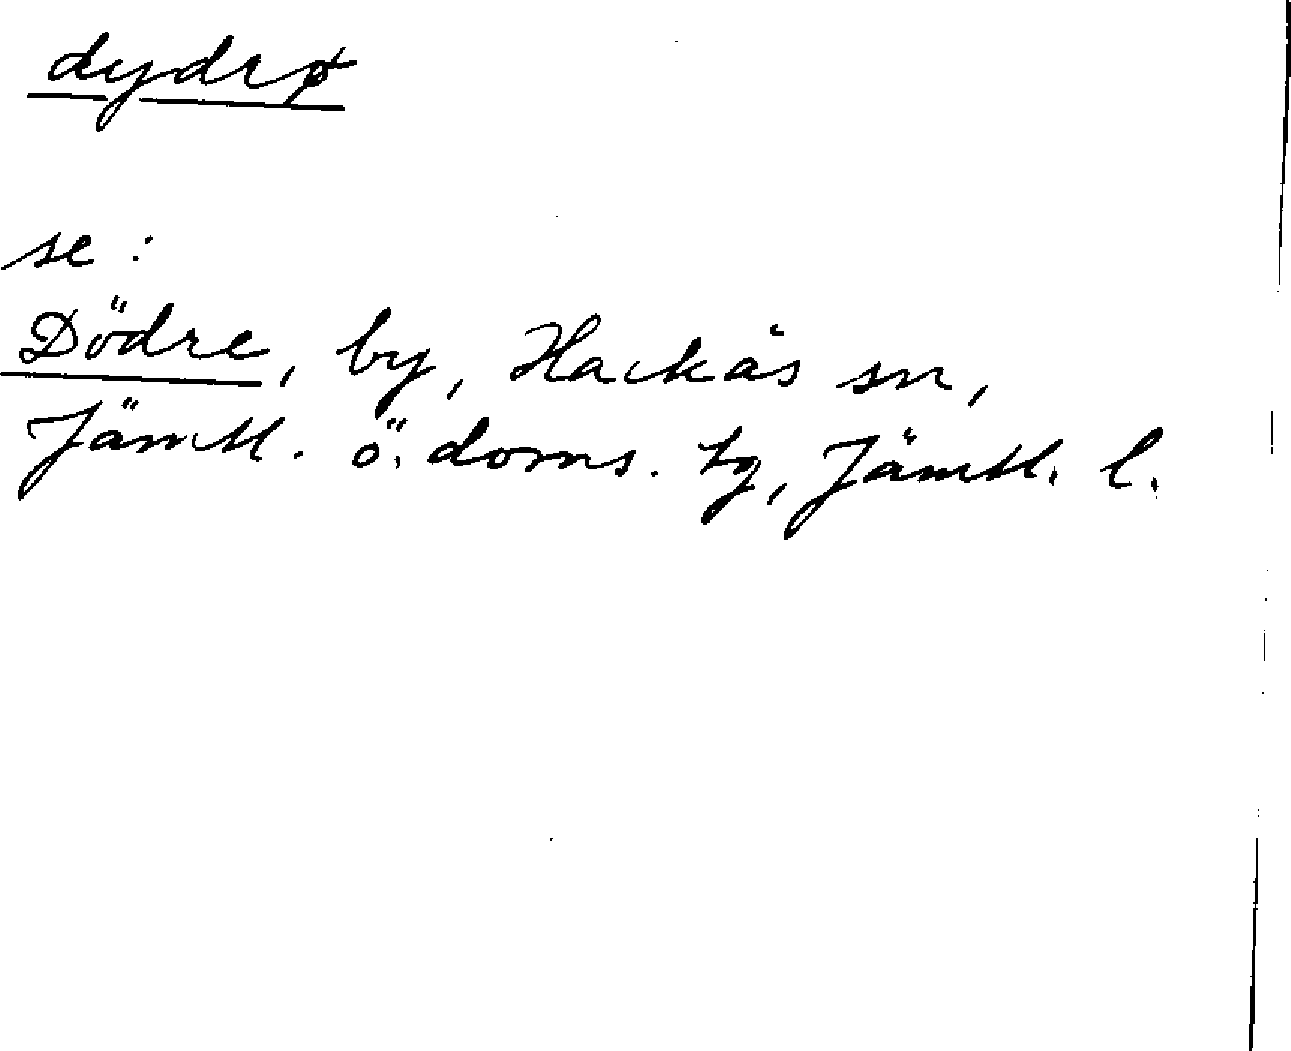 dydrø
se:
Dödre, by, Hackås sn,
Jämtl. ö. doms. tg, Jämtl. l.